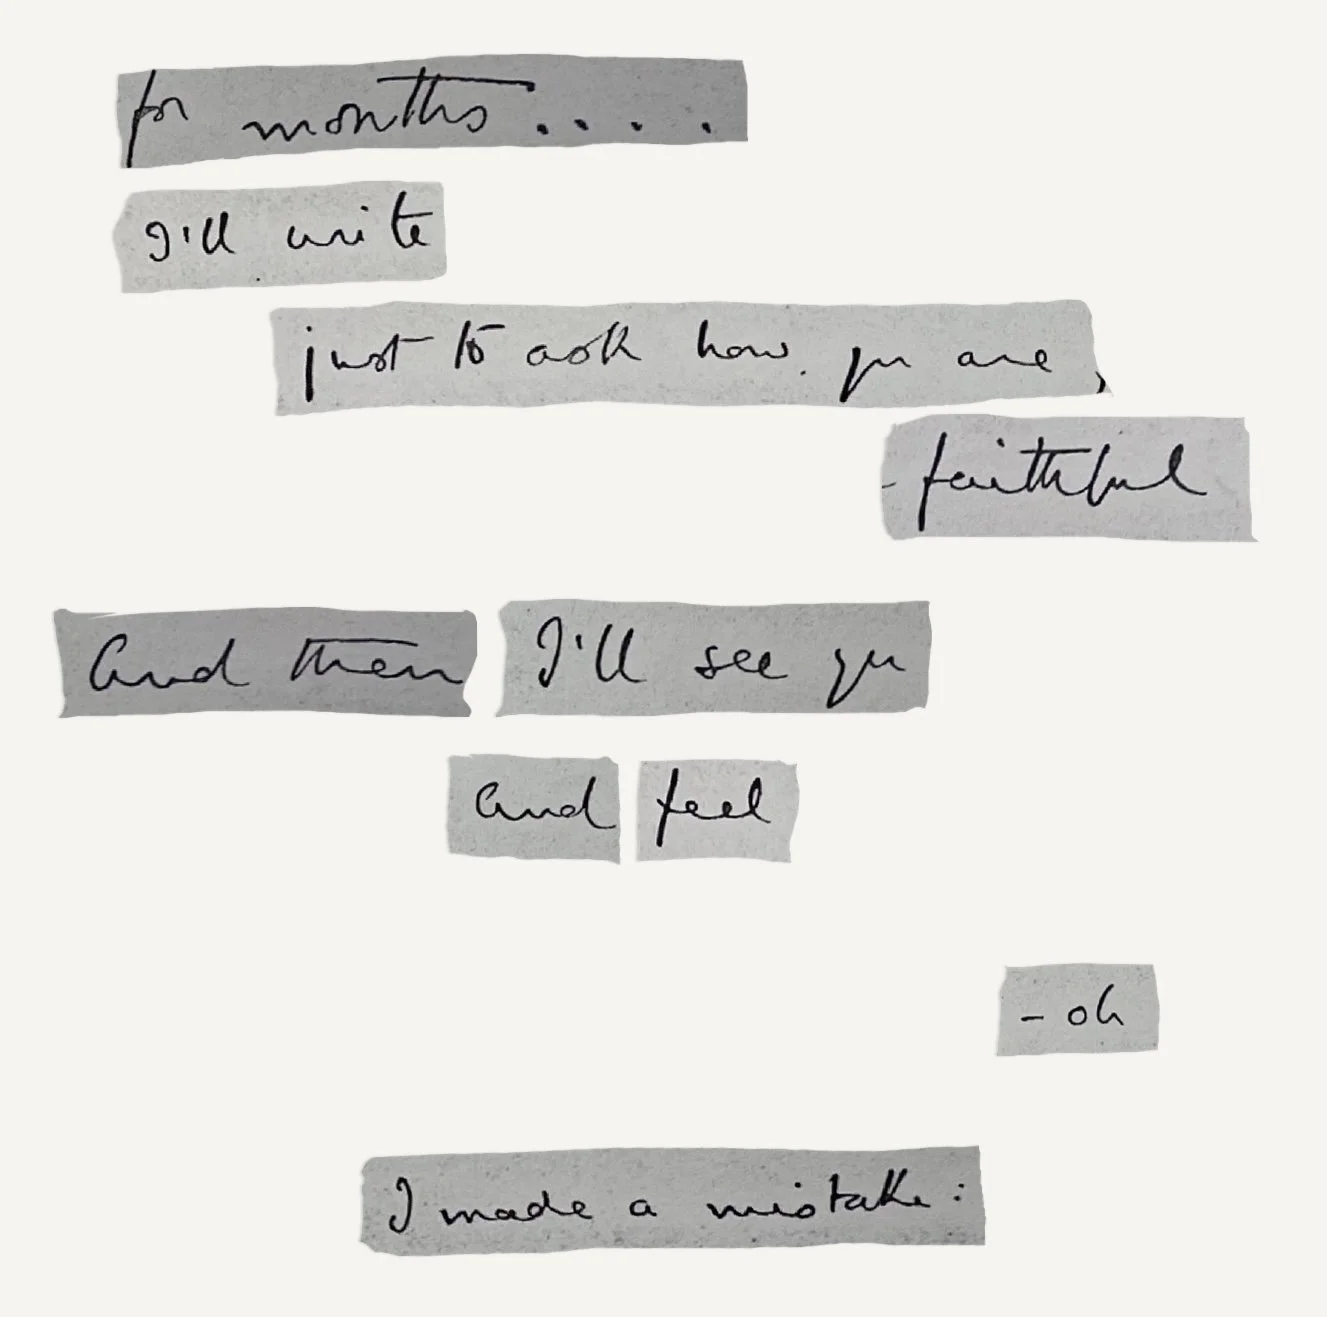 for months....
I'll write
just to ask how you are,
- faithful
And then I'll see you
and feel
- oh
I made a mistake: